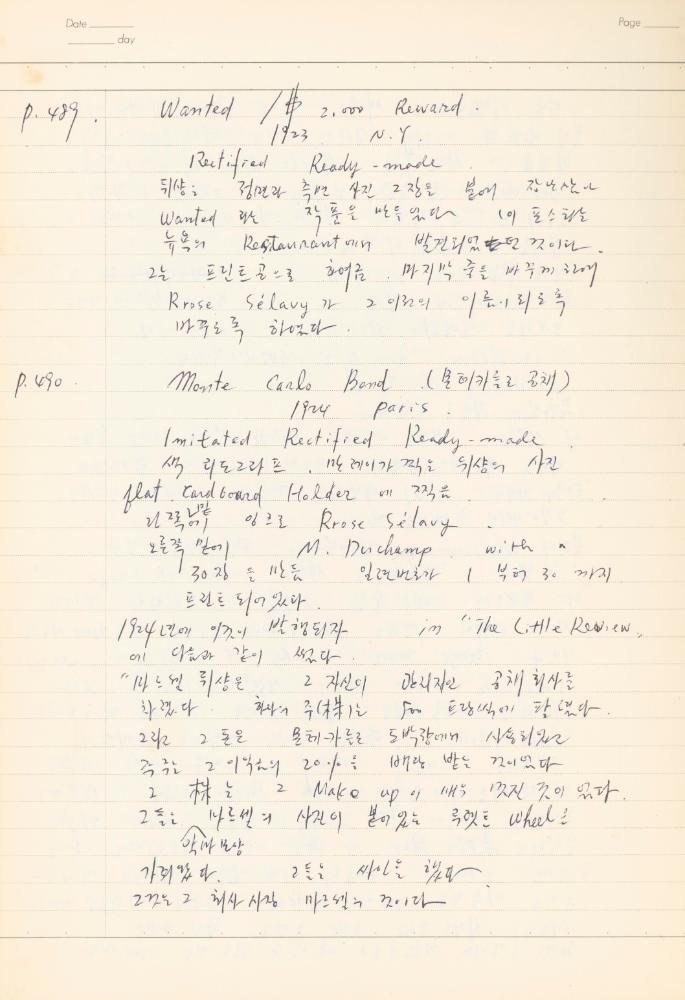 Date
Page
day
P. 489. Wanted /$ 2,000 Reward.
1923 N.Y.
Rectified Ready-made
뒤샹은 정면과 측면 사진 2장을 붙여
Wanted 라는 작품을 만들었다 이 포스타는
뉴욕의 Restaunrant에서 발견되었던 것이다.
그는 프린트공으로 하여금. 마지막 줄을 바꾸게 하여
Rrose Sélavy가 그 이런의 이름이 되도록
바꾸도록 하였다.
P. 490. Monte Carlo Bond. (몬테카를로 공채)
1924 paris.
Imitated Rectified Ready-made
색 리도그라프. 만레이가 찍은 뒤샹의 사진
flat. cardboard Holder에 찍음
왼쪽 밑에 잉크로 Rrose Sélavy.
오른쪽 밑에 M. Duchamp. with a
30장을 만듬 일련번호가 1 부터 30 까지
프린트 되어 있다.
1924년에 이것이 발행되자 in "The Little Review"
에 다음과 같이 썼다.
"마르셀 뒤샹은 그 자신이 관리자인 공채 회사를
차렸다. 회사의 주(株)는 500 프랑씩에 팔렸다.
그리고 그 돈은 몬테카를로 도박장에서 사용되었고
주주는 그 이익금의 20%를 배당 받는 것이었다
그 株는 그 Make up이 매우 멋진 것이 있다.
그들은 마르셀의 사진이 붙어 있는 루렛트 wheel을
악마 모양
가졌었다. 그들은 싸인을 했다
그것은 그 회사 사장 마르셀의 것이다